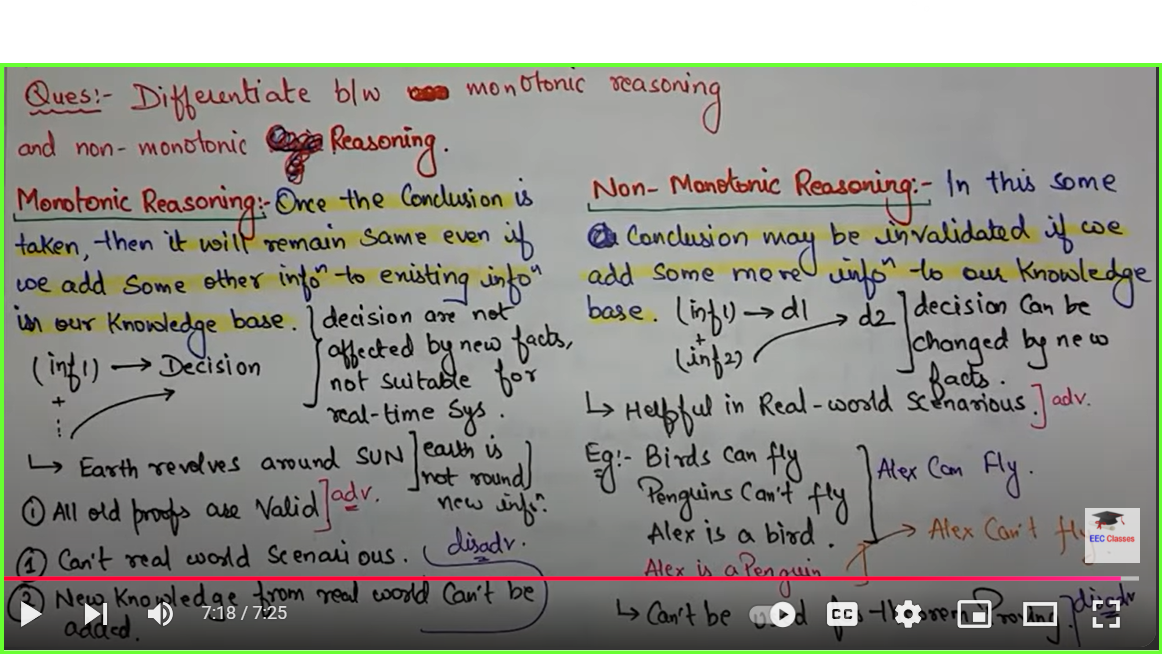 Ques:- Differentiate b/w monotonic reasoning
and non-monotonic Reasoning.
Monotonic Reasoning:- Once the Conclusion is
taken, then it will remain same even if
we add some other infoⁿ to existing infoⁿ
in our Knowledge base.
decision are not
affected by new facts,
not suitable for
real-time Sys.
(inf1) → Decision
+
⋮
↳ Earth revolves around SUN
earth is
not round
new infoⁿ.
① All old proofs are Valid
adv.
① Can't real world Scenarious.
disadv.
② New Knowledge from real world Can't be
added.
Non-Monotonic Reasoning:- In this some
Conclusion may be invalidated if we
add some more infoⁿ to our Knowledge
base.
(inf1) → d1
+
(inf2)
d2
decision Can be
changed by new
facts.
↳ Helpful in Real-world Scenarious.
adv.
Eg:- Birds Can fly
Penguins Can't fly
Alex is a bird.
Alex Can Fly.
Alex is a Penguin
→ Alex Can't fly
↳ Can't be used for theorem Proving.
disadv
EEC Classes
7:18 / 7:25
CC